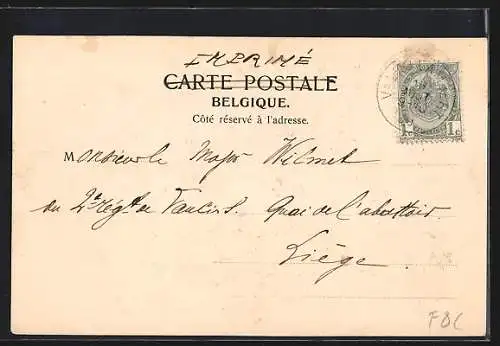 IMPRIMÉ
CARTE POSTALE
BELGIQUE.
Côté réservé à l'adresse.
1c 1c
Monsieur le Major Wilmet
du 2e Régt de Quai de l'abattoir.
Liège.
FBC